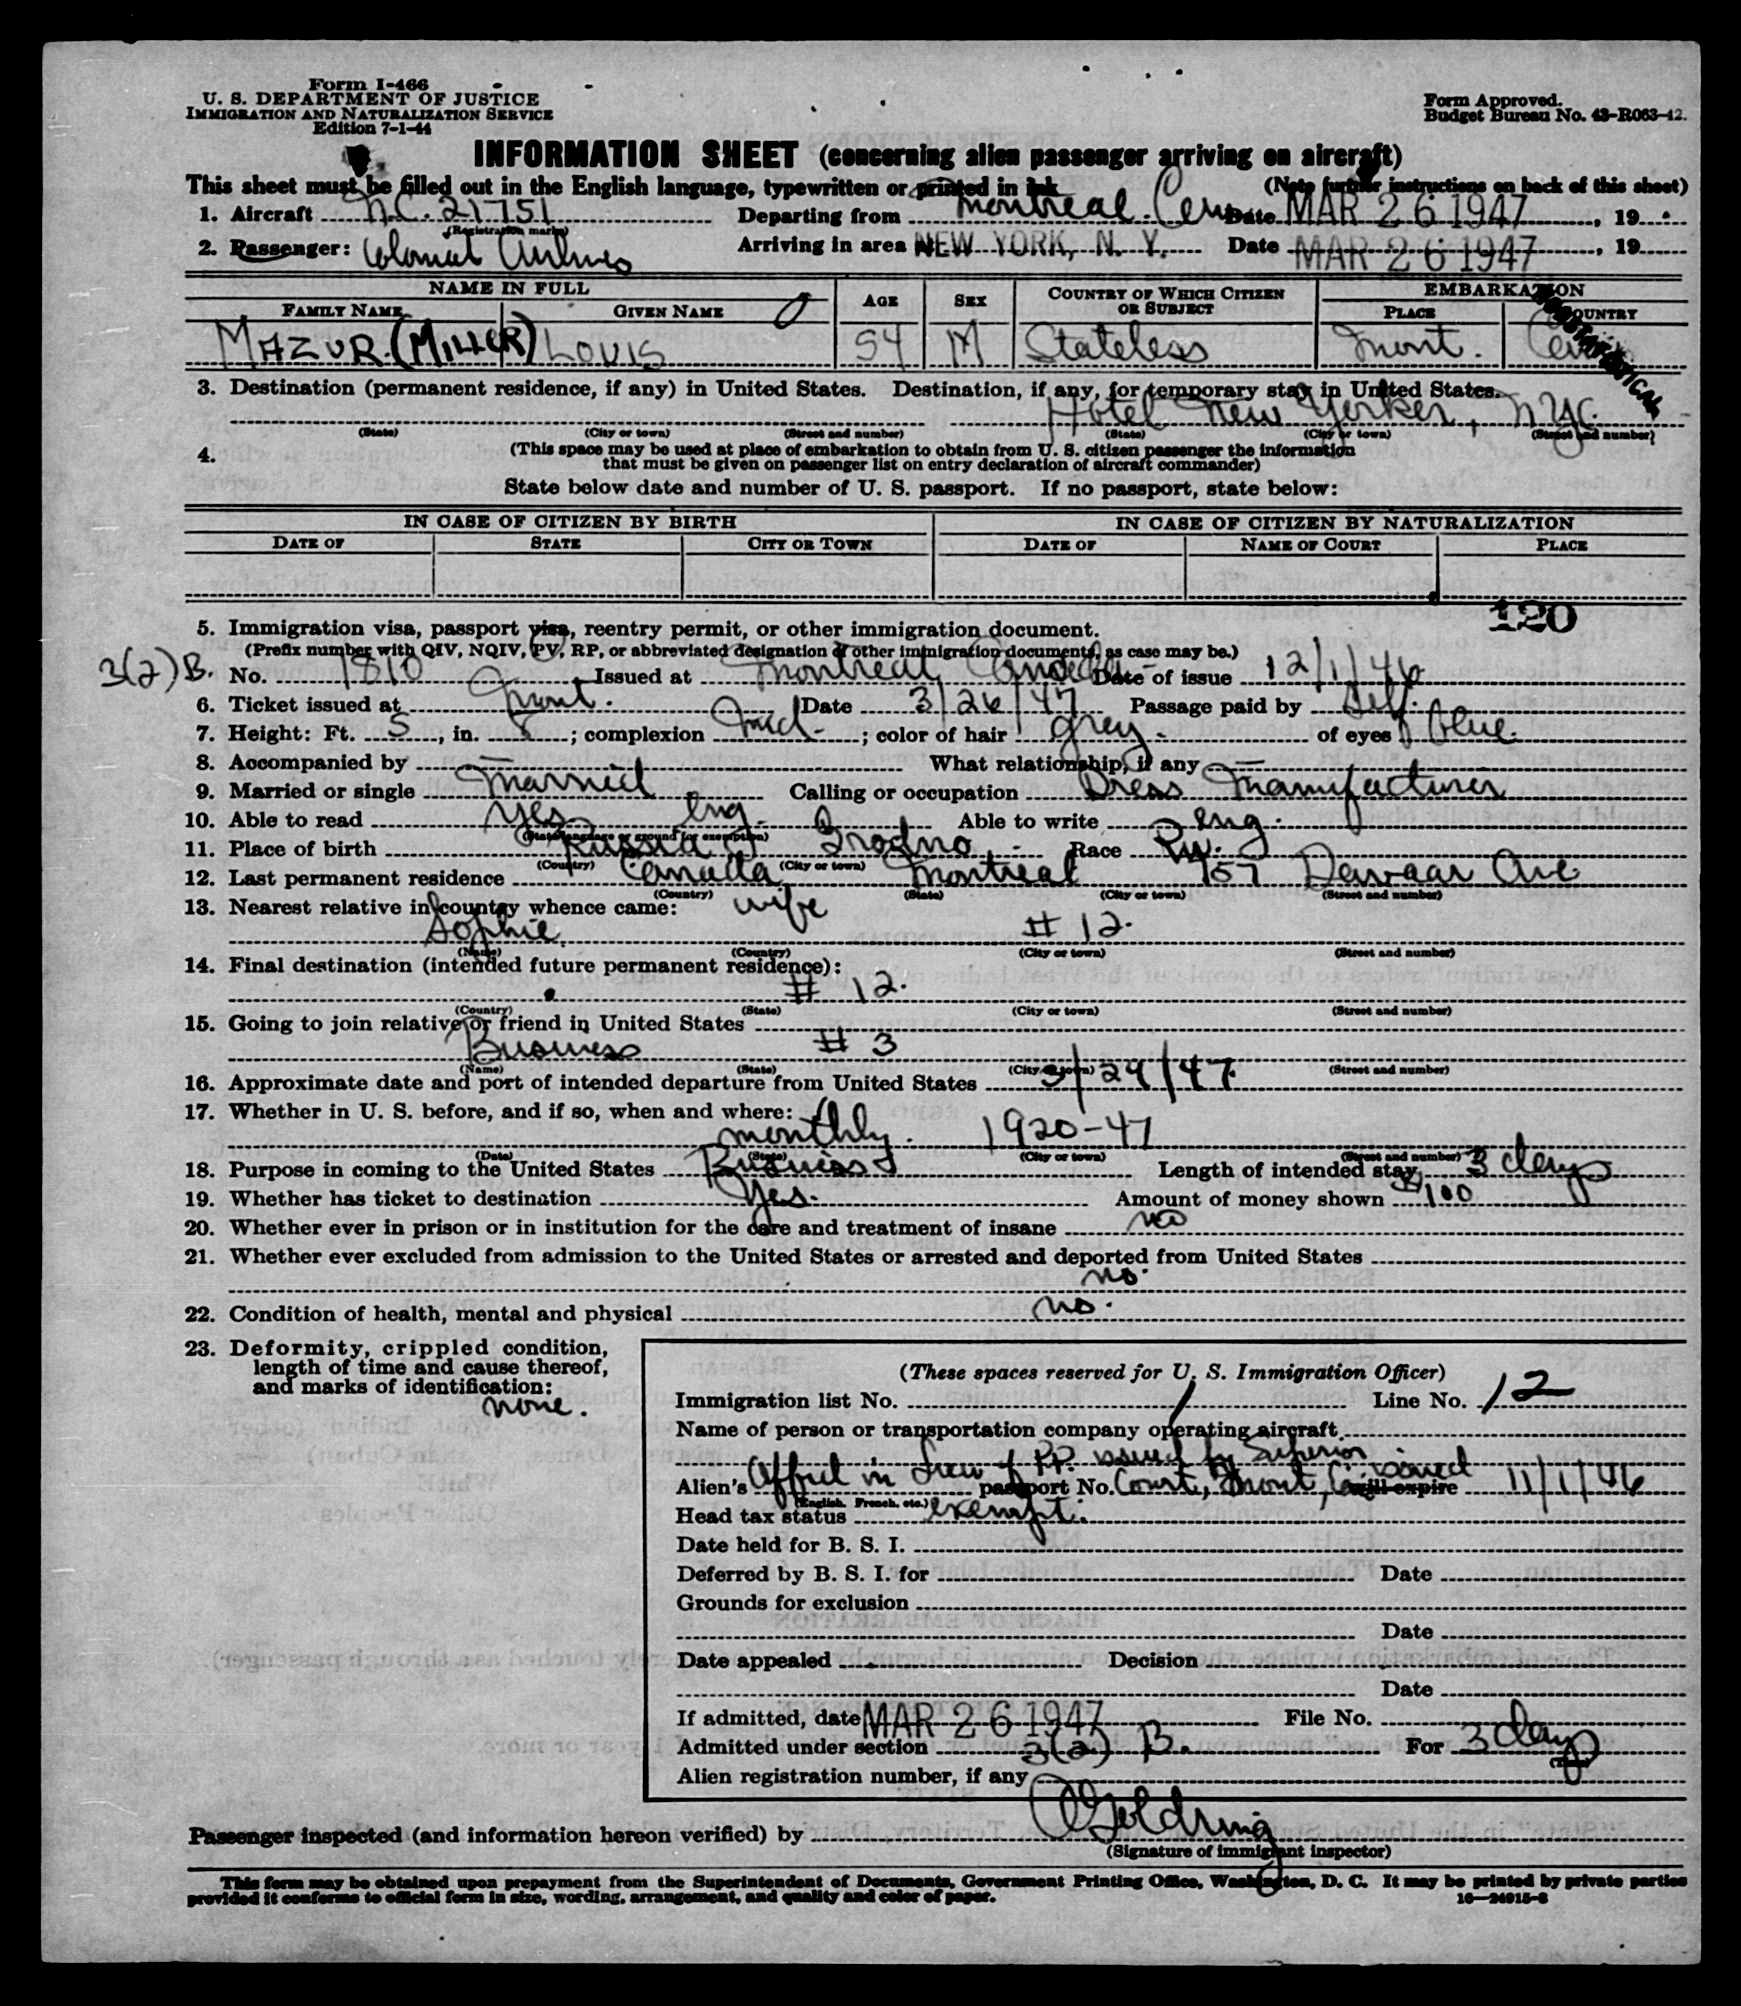 Form I-466
U. S. DEPARTMENT OF JUSTICE
IMMIGRATION AND NATURALIZATION SERVICE
Edition 7-1-44
Form Approved.
Budget Bureau No. 43-R063-42.
INFORMATION SHEET (concerning alien passenger arriving on aircraft)
This sheet must be filled out in the English language, typewritten or printed in ink
(Note further instructions on back of this sheet)
1. Aircraft N.C. 21751 Departing from Montreal Date MAR 26 1947, 19
(Registration marks)
2. Passenger: Colonial Airlines Arriving in area NEW YORK, N. Y. Date MAR 26 1947, 19
NAME IN FULL AGE SEX COUNTRY OF WHICH CITIZEN OR SUBJECT EMBARKATION
FAMILY NAME GIVEN NAME PLACE COUNTRY
MAZUR (MILLER) LOUIS 54 M Stateless Mont.
3. Destination (permanent residence, if any) in United States. Destination, if any, for temporary stay in United States.
Hotel New Yorker, NYC.
(State) (City or town) (Street and number) (State) (City or town) (Street and number)
4. (This space may be used at place of embarkation to obtain from U. S. citizen passenger the information
that must be given on passenger list on entry declaration of aircraft commander)
State below date and number of U. S. passport. If no passport, state below:
IN CASE OF CITIZEN BY BIRTH IN CASE OF CITIZEN BY NATURALIZATION
DATE OF STATE CITY OR TOWN DATE OF NAME OF COURT PLACE
120
5. Immigration visa, passport visa, reentry permit, or other immigration document.
(Prefix number with QIV, NQIV, PV, RP, or abbreviated designation of other immigration documents, as case may be.)
3(2) B. No. 1810 Issued at Montreal Canada Date of issue 12/1/46
6. Ticket issued at Mont. Date 3/26/47 Passage paid by Self.
7. Height: Ft. 5, in. 8; complexion Med.; color of hair grey. of eyes blue.
8. Accompanied by — What relationship, if any —
9. Married or single Married Calling or occupation Dress Manufacturer
10. Able to read yes eng. Able to write eng.
(State language or ground for exemption)
11. Place of birth Russia Grodno Race Ru.
(Country) (City or town)
12. Last permanent residence Canada Montreal 757 Ave
(Country) (State) (City or town) (Street and number)
13. Nearest relative in country whence came: wife
Sophie # 12.
(Name) (Country) (City or town) (Street and number)
14. Final destination (intended future permanent residence):
# 12.
(Country) (State) (City or town) (Street and number)
15. Going to join relative or friend in United States
Business # 3
(Name) (State) (City or town) (Street and number)
16. Approximate date and port of intended departure from United States 3/29/47
17. Whether in U. S. before, and if so, when and where:
monthly. 1920-47
(Date) (State) (City or town) (Street and number)
18. Purpose in coming to the United States Business Length of intended stay 3 days
19. Whether has ticket to destination Yes. Amount of money shown $100
20. Whether ever in prison or in institution for the care and treatment of insane no
21. Whether ever excluded from admission to the United States or arrested and deported from United States
no.
22. Condition of health, mental and physical no.
23. Deformity, crippled condition,
length of time and cause thereof,
and marks of identification:
none.
(These spaces reserved for U. S. Immigration Officer)
Immigration list No. 1 Line No. 12
Name of person or transportation company operating aircraft
Alien's Affid in lieu of PP. issued by Superior passport No. Court, Mont, Ca issued will expire 11/1/46
(English, French, etc.)
Head tax status exempt.
Date held for B. S. I.
Deferred by B. S. I. for Date
Grounds for exclusion
Date
Date appealed Decision
Date
If admitted, date MAR 26 1947 File No.
Admitted under section 3(2) B. For 3 days
(Time)
Alien registration number, if any
Passenger inspected (and information hereon verified) by Goldring
(Signature of immigrant inspector)
This form may be obtained upon prepayment from the Superintendent of Documents, Government Printing Office, Washington, D. C. It may be printed by private parties
provided it conforms to official form in size, wording, arrangement, and quality and color of paper. 16—24915-3